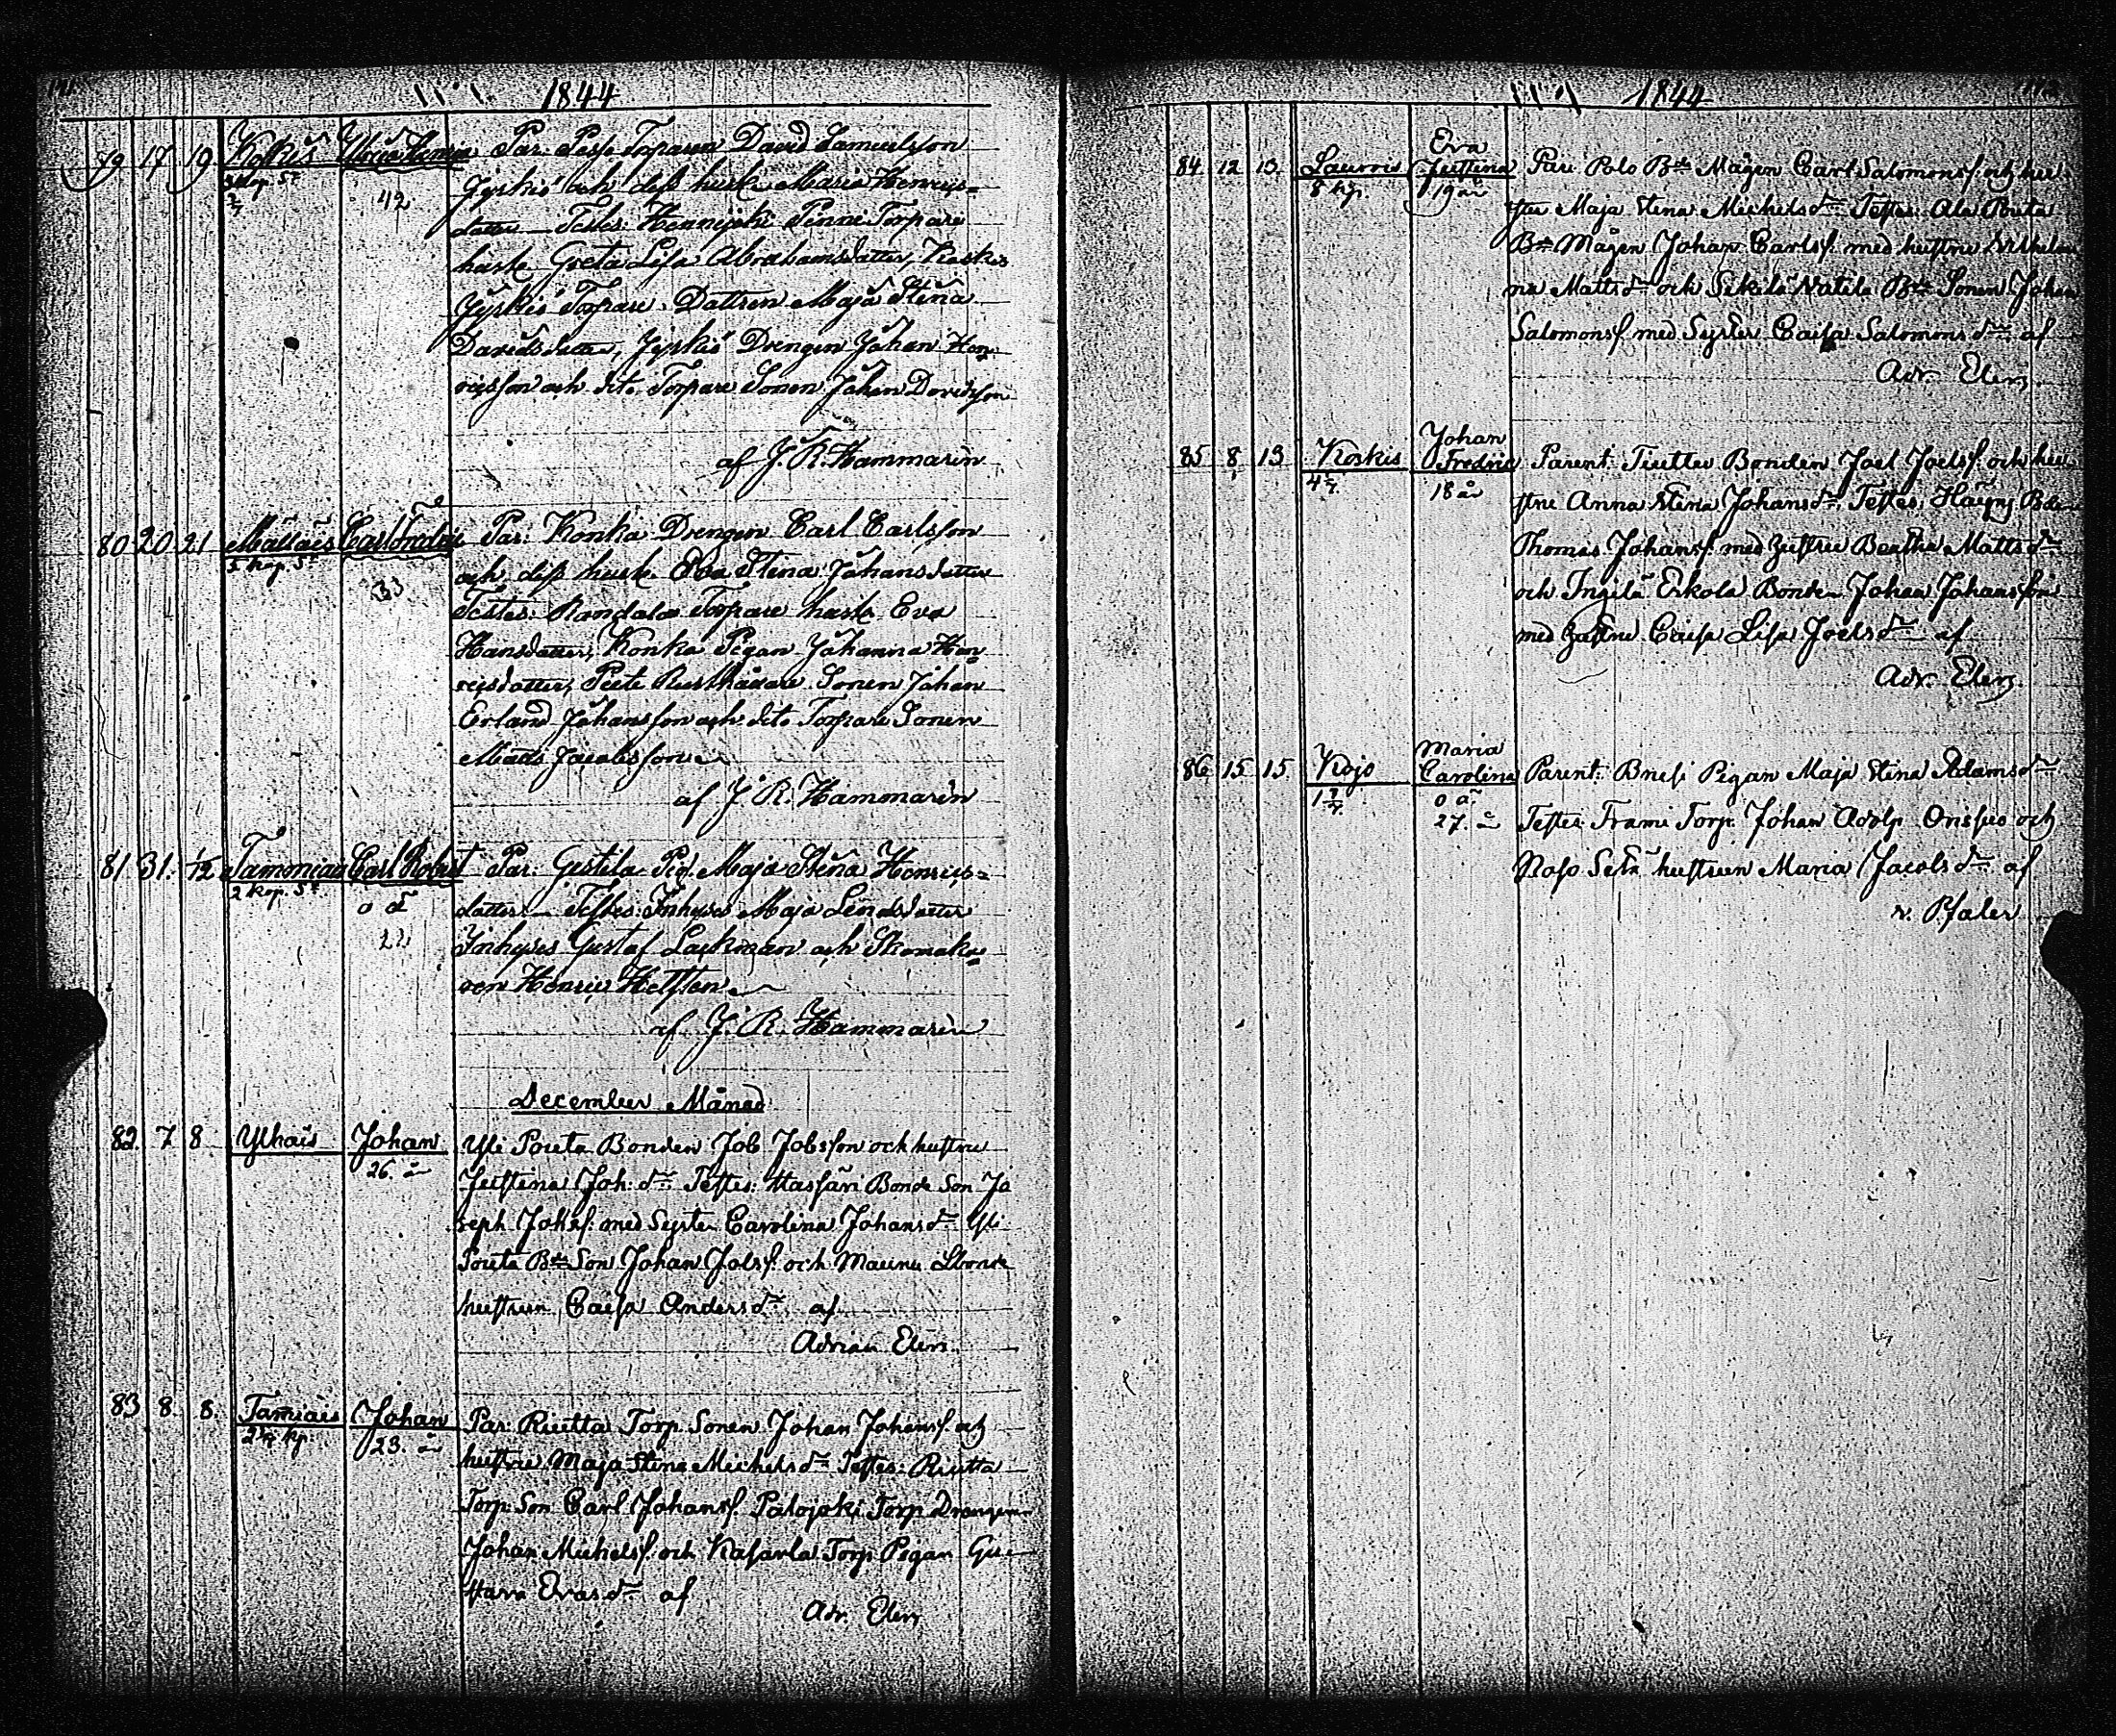 1844
79 17 19 Koskis Ulrica
42
Par: Torparen David Samuelsson
Jyskis och dess husk. Maria Henrics=
datter Testes: Hennijoki Pinne Torpare
husk. Greta Lisa Abrahamsdatter, Koskis
Jyskis Torpare Dattren Maja Stina
Davidsdatter, Jyskis Drengen Johan Hen
ricsson och dito Torpare Sonen Johan Davidsson
af J. R. Hammarin
80 20 21 Mattais Carl Fredric Par: Konka Drengen Carl Carlsson
5 kop. Sr
33
och dess husk. Eva Stina Johansdatter
Testes: Torpare husk Eva
Hansdatter, Konka Pigan Johanna Hen
ricsdatter, Rusthållare Sonen Johan
Erland Johansson och dito Torpare Sonen
Mats Jacobsson
af J. R. Hammarin
81 31 1/12 Tammiais Carl Robert Par: Gestila Pig. Maja Stina Henrics=
2 kop. Sr
o ä
22
datter Testes: Inhyses Maja Lenasdatter
Inhyses Gustaf Lackman och Skomaka
ren Henric Hellsten
af J. R. Hammarin
December Månad
82. 7 8 Ylhäis Johan
26. år
Yli Pouta Bonden Job Jobsson och hustru
Justina Joh: dr Testes: Bonde Son Jo
seph med Syster Carolina Johans dr Yli
Pouta Bde Son Johan Jobs. och Maunu
hustrun Caisa Anders dr af
Adrian Elers.
83 8. 8. Tamiais Johan
23. år
Par: Riutta Torp. Sonen Johan Johans. och
hustru Maja Stina Michels dr Testes: Riutta
Torp: Son Carl Johans. Palojoki Torp Drengen
Johan Michels. och Kasarla Torp Pigan Gu
stava Evas dr af
Adr. Elers
1844
84 12 13. Lauris Eva
Justina
8 kp. 19 år
Par: Polo Bde Mågen Carl Salomons. och hu
stru Maja Stina Michels dr Testes: Ala Pouta
Bde Mågen Johan Carls. med hustru Vilhelmi
na Matts dr och Sikilä Natila Bde Sonen Johan
Salomons. med Syster Caisa Salomons dr af
Adr. Elers.
85 8 13 Koskis Johan
Fredric
18 år
Parent: Tuittu Bonden Joel Joels. och hu
stru Anna Stina Johans dr, Testes: Bde
Thomas Johans. med hustru Beatha Matts dr
och Ingilä Erkola Bonden Johan Johansson
med hustru Caisa Lisa Joels dr af
Adr. Elers.
86 15. 15. Kojo Maria
Carolina
o ä.
27. år
Parent: Pigan Maja Stina Adams dr
Testes: Frami Torp. Johan Adolp och
hustrun Maria Jacobs dr af
v. Pfaler